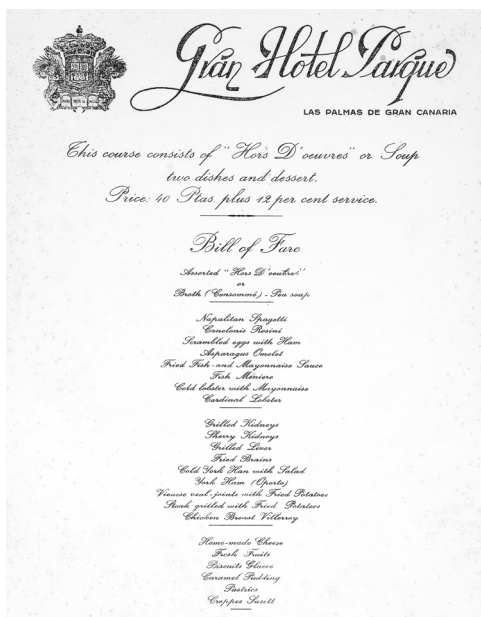 Gran Hotel Parque
LAS PALMAS DE GRAN CANARIA
This course consists of "Hors D'oeuvres" or Soup
two dishes and dessert.
Price: 40 Ptas. plus 12 per cent service.
Bill of Fare
Assorted "Hors D'oeuvres"
or
Broth (Consommé) - Pea soup
Napolitan Spagetti
Canelonis Rosini
Scrambled eggs with Ham
Asparagus Omelet
Fried Fish-and Mayonnaise Sauce
Fish Meniere
Cold lobster with Mayonnaise
Cardinal Lobster
Grilled Kidneys
Sherry Kidneys
Grilled Liver
Fried Brains
Cold York Han with Salad
York Ham (Oporto)
Vienese veal-joints with Fried Potatoes
Steak grilled with Fried Potatoes
Chicken Breast Villerroy
Home-made Cheese
Fresh Fruits
Biscuits Glacee
Caramel Pudding
Pastries
Creppes Susett